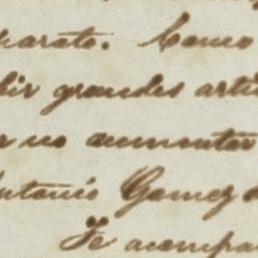 parato. Como
bir grandes arti
r no aumentar
Antonio Gomez
Te acompa